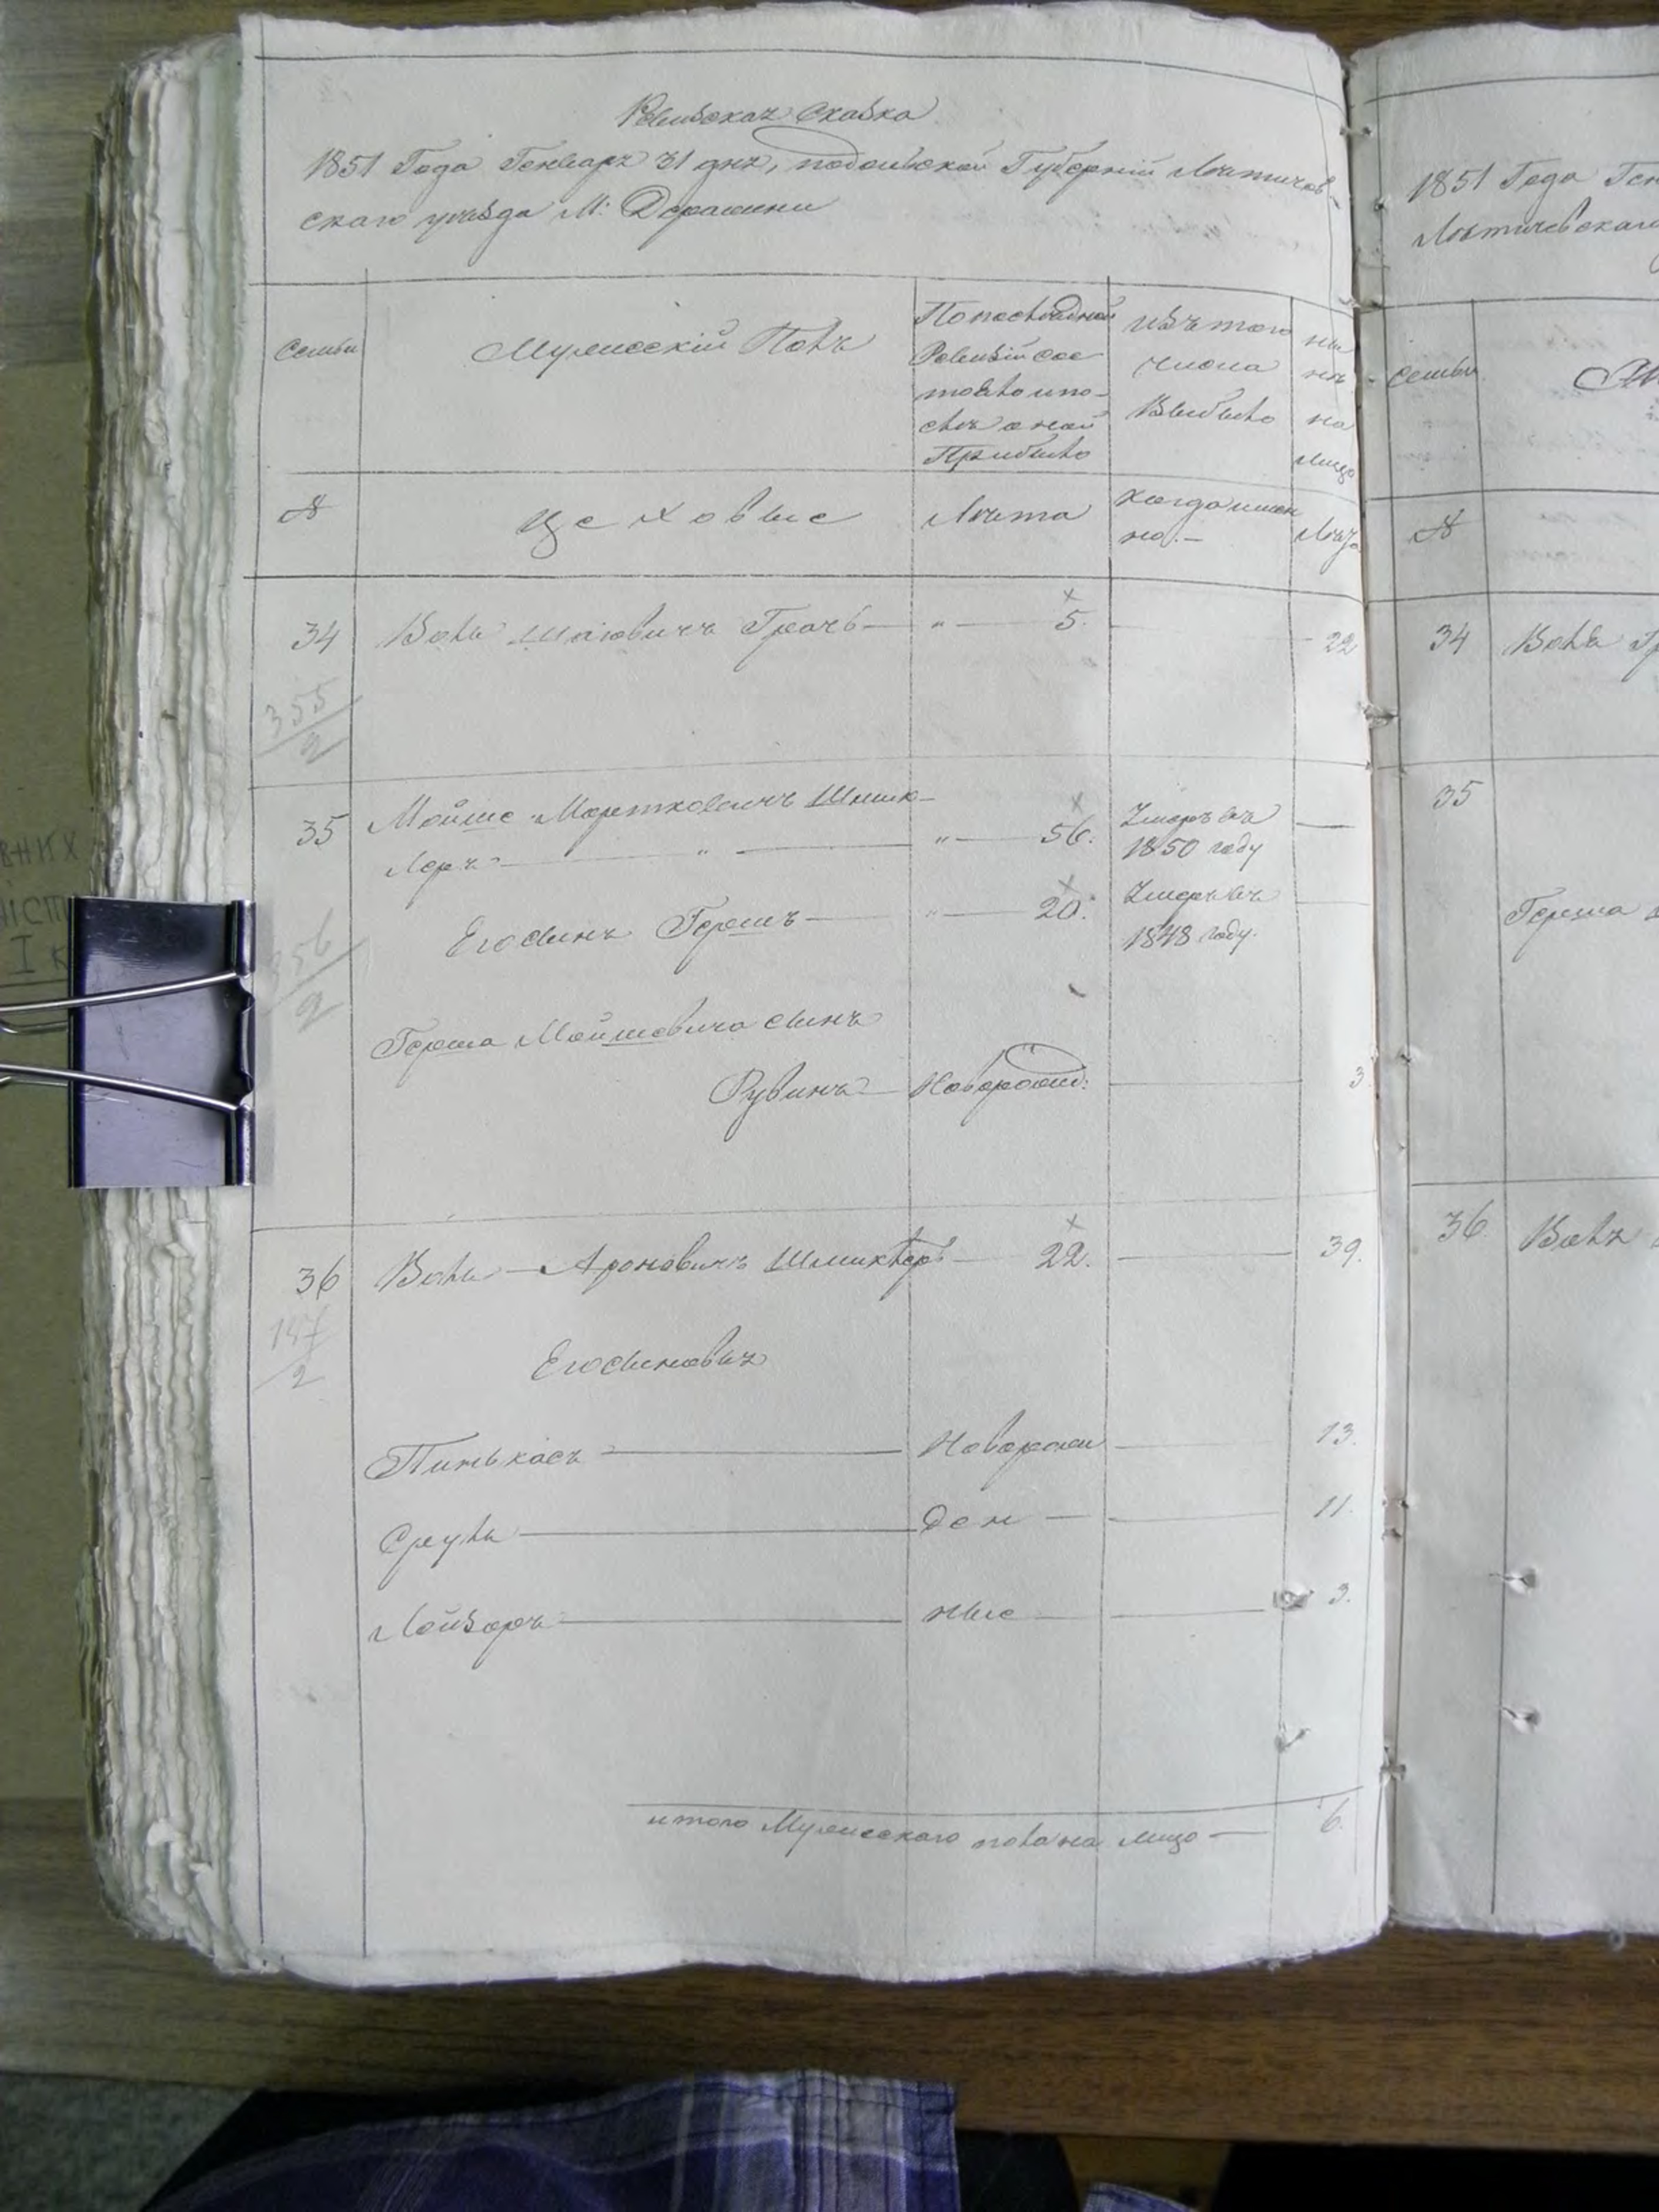 Ревизская Сказка
1851 Года Генваря 31 дня, подольской Губернiи Лѣтичев-
скаго уѣзда М: Деражни
Семьи
Мужескiй Полъ
По последней
Ревизiи сос-
тояло ипо-
слѣ оной
Прибыло
изъ того
числа
Выбыло
ны
нѣ
на
лицо
№
Цеховые
Лѣта
когда имен
но.-
Лѣта
34
Воль Шаіовичъ Грачъ
5.
22
355/2
35
Мойше Мортковичъ Шпик-
леръ
56.
Умеръ въ
1850 году
Его Сынъ Гершъ
20.
Умеръ въ
1848 году.
356/2
Герша Мойшовича сынъ
Рувинъ
Новорожд:
3
36
Воль Ароновичъ Шпиклеръ
22.
39.
147/2
Его Сыновья
Пинькасъ
Новорож
13.
Сруль
ден
11.
Лойзоръ
ные
3.
итого Мужескаго пола на лицо
6.
1851 Года Ген
Лѣтичевскаго
семьи
№
34
Воля
35
Герша
36
Воля